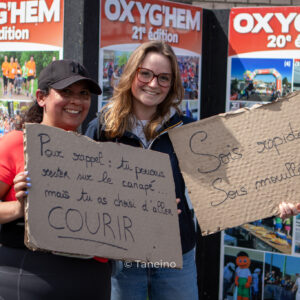 OXYG'HEM
édition
OXYG'HEM
21e édition
OXYG'HEM
20e édition
Pour rappel : tu pouvais
rester sur le canapé...
mais tu as choisi d'aller
COURIR
Sois rapide
Sois mouill
© Taneino